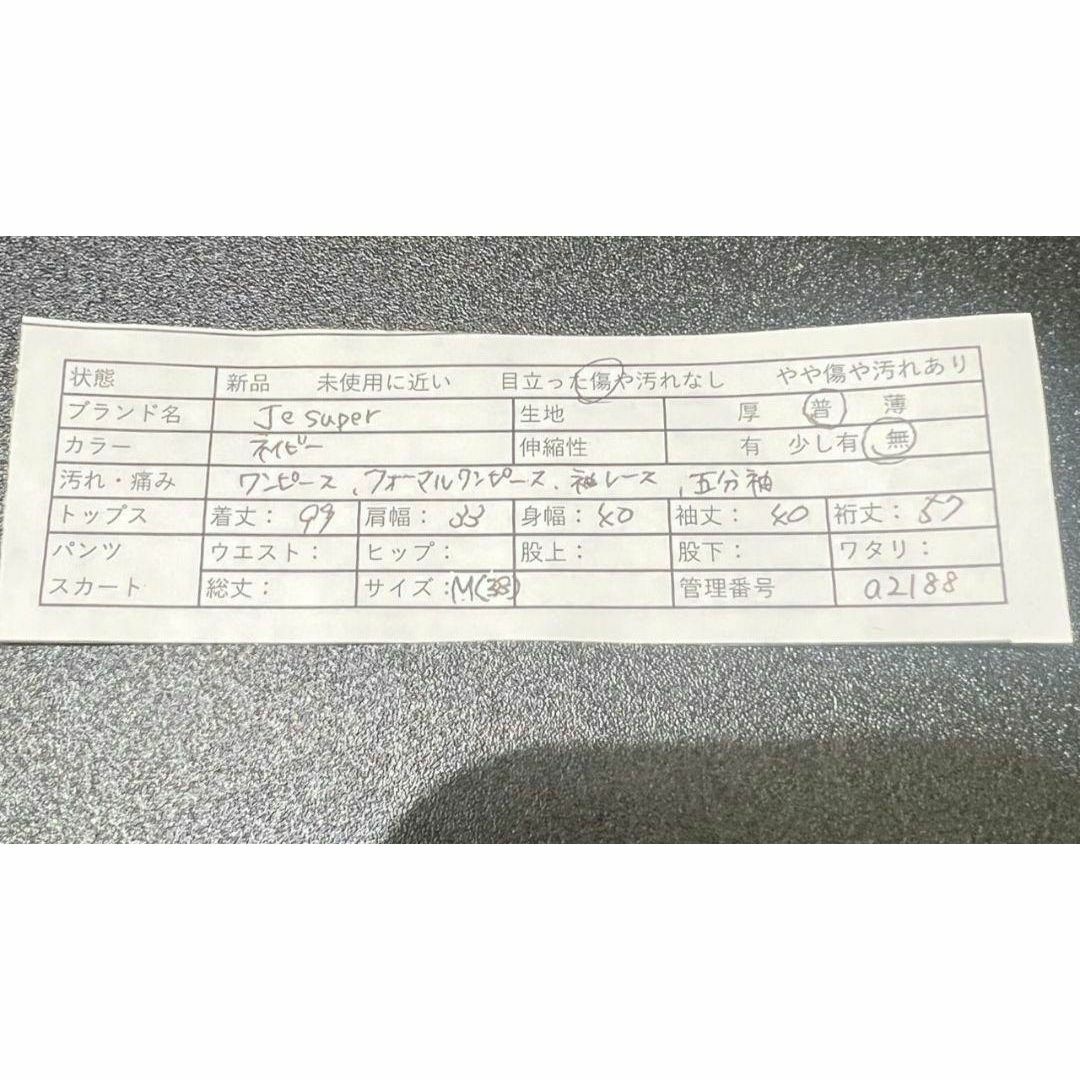 状態 新品 未使用に近い 目立った傷や汚れなし やや傷や汚れあり
ブランド名 Je super 生地 厚 普 薄
カラー ネイビー 伸縮性 有 少し有 無
汚れ・痛み ワンピース、フォーマルワンピース、袖レース、五分袖
トップス 着丈：99 肩幅：33 身幅：40 袖丈：40 裄丈：57
パンツ ウエスト： ヒップ： 股上： 股下： ワタリ：
スカート 総丈： サイズ：M(38) 管理番号 a2188